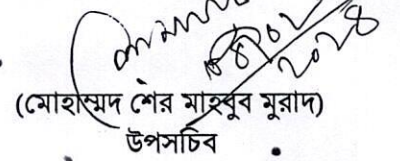 ২০২৪
(মোহাম্মদ শের মাহবুব মুরাদ)
উপসচিব